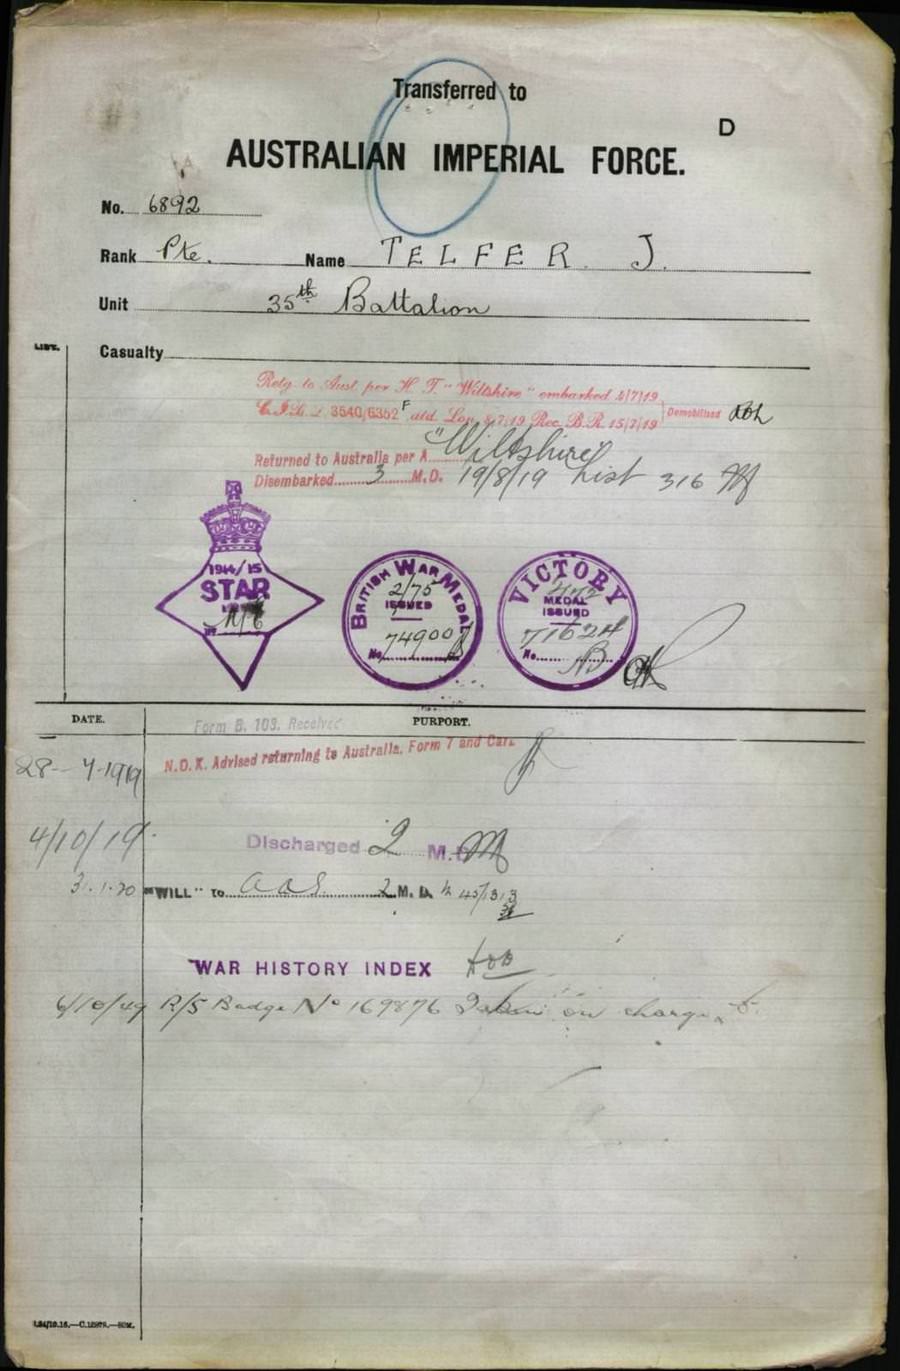 Transferred to
D
AUSTRALIAN IMPERIAL FORCE.
No. 6892
Rank Pte. Name TELFER. J.
Unit 35th Battalion
LIST.
Casualty
Retg. to Aust. per H. T. "Wiltshire" embarked 2/7/19
C.I.B.L. 3540/6352 F atd. Lon. 8/7/19 Rec. B.R. 15/7/19 Demobilised
Returned to Australia per A "Wiltshire"
Disembarked 3 M.D. 19/8/19 List 316
1914/15
STAR
BRITISH WAR MEDAL
2/75
ISSUED
No. 74900
VICTORY
MEDAL
ISSUED
No. 71624
DATE. PURPORT.
Form B. 103. Received
28-7-1919 N.O.K. Advised returning to Australia. Form 7 and Card
4/10/19. Discharged 2 M.D.
31.1.20 "WILL" to 2 M. D.
WAR HISTORY INDEX
6/10/49 R/S Badge No 169876 Taken on charge.